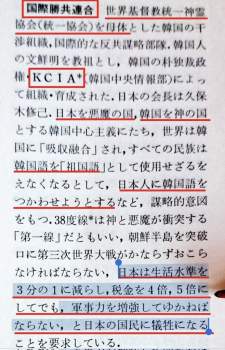 国際勝共連合 世界基督教統一神霊
協会(統一協会)を母体とした韓国の干
渉組織,国際的な反共謀略部隊。韓国人
の文鮮明を教祖とし,韓国の朴独裁政
権・KCIA*(韓国中央情報部)によっ
て組織・育成された。日本の会長は久保
木修己。日本を悪魔の国,韓国を神の国
とする韓国中心主義にたち,世界は韓国
に「吸収融合」され,すべての民族は
韓国語を「祖国語」として使用せざるを
えなくなるとして,日本人に韓国語を
つかわせようとするなど,謀略的意図
をもつ。38度線*は神と悪魔が衝突する
「第一線」だともいい,朝鮮半島を突破
口に第三次世界大戦がかならずおこら
なければならない,日本は生活水準を
3分の1に減らし,税金を4倍,5倍に
してでも,軍事力を増強してゆかねば
ならない,と日本の国民に犠牲になる
ことを要求している。